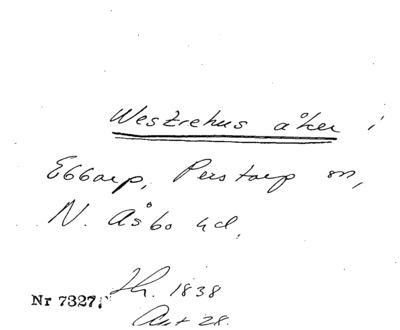 Westrehus åker i
Ebbarp, Perstorp sn,
N. Åsbo hd,
Jh. 1838
Nr 7327.
Akt 28.